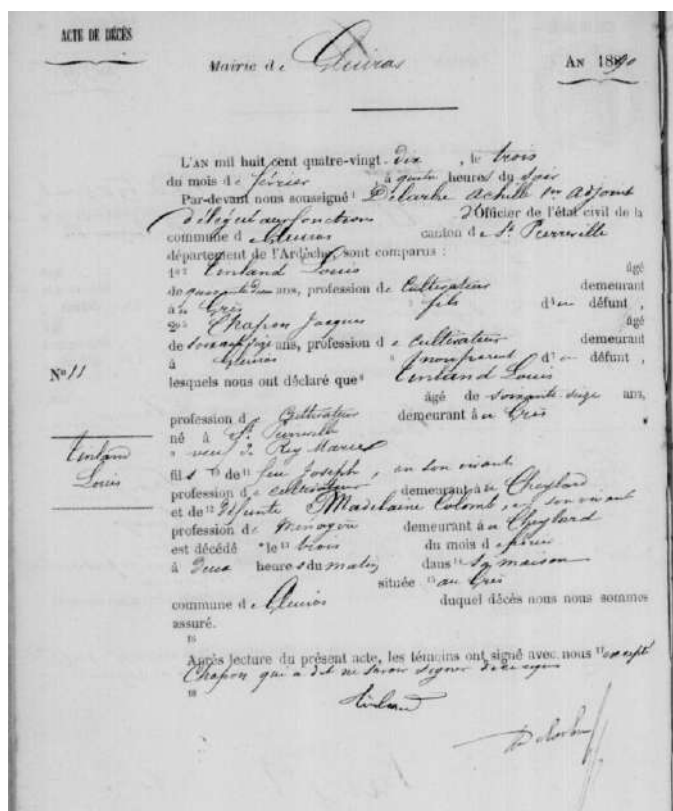 ACTE DE DÉCÈS
Mairie de Gluiras
AN 1890
L'AN mil huit cent quatre-vingt-dix, le trois
du mois de février à quatre heures du soir
Par-devant nous soussigné 1 Delarbre Achille 1er Adjoint
délégué aux fonctions d'Officier de l'état civil de la
commune de Gluiras canton de St Pierreville
département de l'Ardèche, sont comparus :
1° 2 Tinland Louis âgé
de ans, profession de Cultivateur demeurant
au Grès fils du défunt,
2° 5 Chapon Jacques âgé
de ans, profession de cultivateur demeurant
à Gluiras non parent du défunt,
lesquels nous ont déclaré que 8 Tinland Louis
N° 11
âgé de soixante-seize ans,
profession de Cultivateur demeurant au Grès
né à St Pierreville
veuf de Rey Marie
Tinland
Louis
fils de 11 feu Joseph, en son vivant
profession de cultivateur demeurant au Cheylard
et de 12 défunte Madelaine Colomb, en son vivant
profession de Ménagère demeurant au Cheylard
est décédé le 13 trois du mois de février
à deux heures du matin dans 14 sa maison
située 15 au Grès
commune de Gluiras duquel décès nous nous sommes
assuré.
Après lecture du présent acte, les témoins ont signé avec nous 17 excepté
Chapon qui a dit ne savoir signer de ce requis
18
Tinland
Delarbre